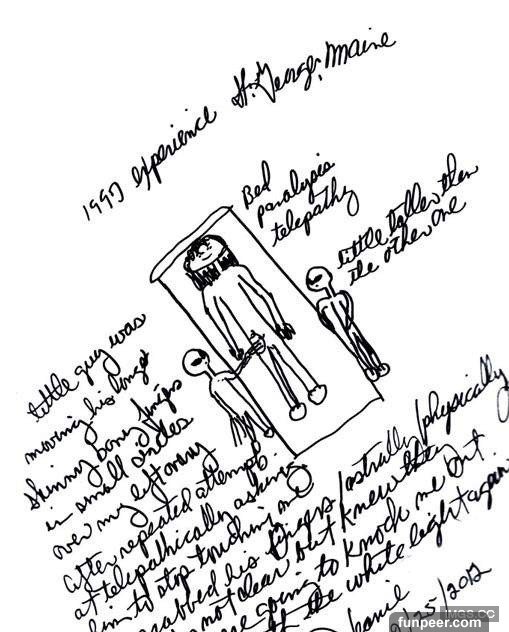 1997 experience St. George, Maine
Bed
paralysis
telepathy
little taller then
the other one
little guy was
moving his long
skinny boney fingers
in small circles
over my left ovary
after repeated attempt
at telepathically asking
him to stop touching me
grabbed his fingers/astrally/physically
not clear but knew they
were going to knock me out
the white light again
25/2012
IMGS.CC
funpeer.com